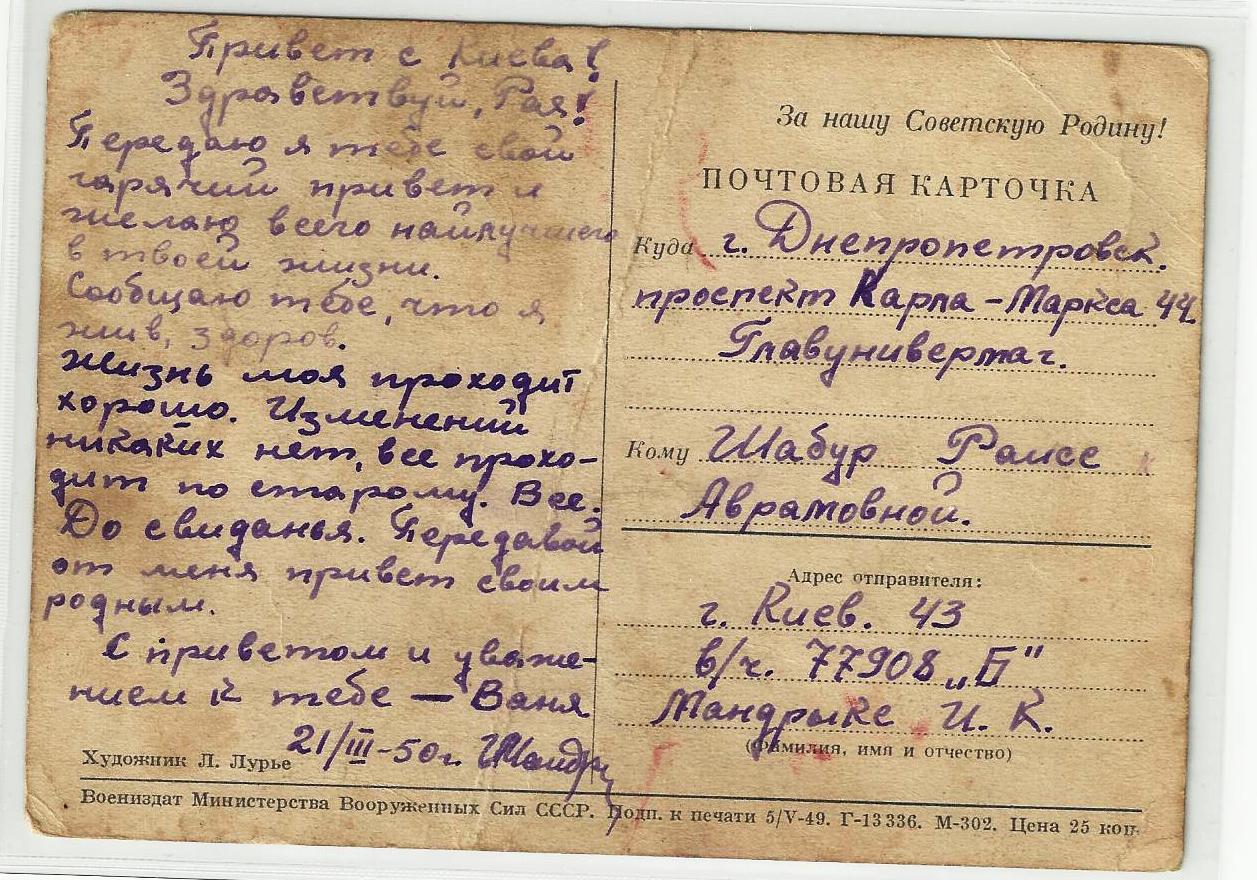 Привет с Киева!
Здравствуй, Рая!
Передаю я тебе свой
гарячий привет и
желаю всего найлучшего
в твоей жизни.
Сообщаю тебе, что я
жив, здоров.
Жизнь моя проходит
хорошо. Изменений
никаких нет, все прохо-
дит по старому. Все.
До свиданья. Передавай
от меня привет своим
родным.
С приветом и уваже-
нием к тебе — Ваня
21/III-50г.
Художник Л. Лурье
За нашу Советскую Родину!
ПОЧТОВАЯ КАРТОЧКА
Куда г. Днепропетровск.
проспект Карла-Маркса 44
Главунивермаг.
Кому Шабур Раисе
Аврамовной.
Адрес отправителя:
г. Киев. 43
в/ч. 77908 „Б"
Мандрыке И. К.
(Фамилия, имя и отчество)
Воениздат Министерства Вооруженных Сил СССР. Подп. к печати 5/V-49. Г-13336. М-302. Цена 25 коп.